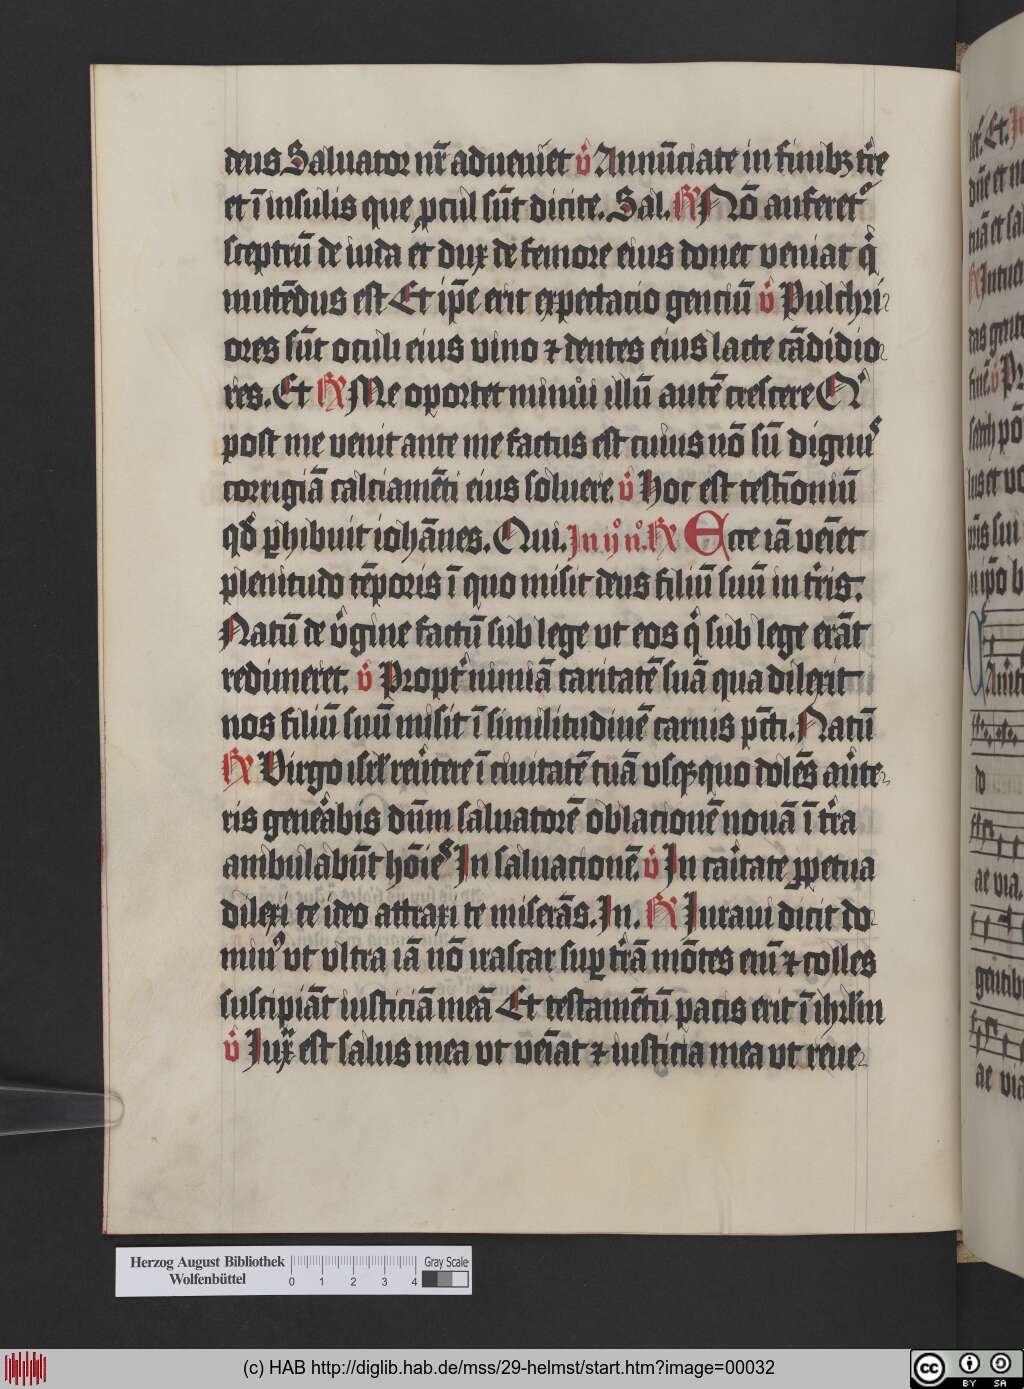 deus Saluator nr̄ adueniet v̾ Annūciate in finibꝫ tr̄e
et ī insulis que ꝓcul sūt dicite. Sal. R Nō auferet᷒
sceptrū de iuda et dux de femore eius donec veniat q̇
mittēdus est Et ip̄e erit expectacio genciū v̾ Pulchri-
ores sūt oculi eius vino ⁊ dentes eius lacte cādidio-
res. Et R Me oportet minui illū autē crescere Q̇
post me venit ante me factus est cuius nō sū dignu᷒
corrigiā calciamēti eius soluere. v̾ Hoc est testīoniū
qd̄ ꝑhibuit iohānes. Qui. In ij nͦ. R Ecce iā vēiet
plenitudo tēporis ī quo misit deus filiū suū in tr̄is.
Natū de v̾gine factū sub lege vt eos q̇ sub lege erāt
redimeret. v̾ Propt᷒ nimiā caritatē suā qua dilexit
nos filiū suū misit ī similitudinē carnis pc̄ti. Natū
R Virgo isrl̄ reu᷒tere ī ciuitatē tuā vsqꝫ quo dolēs au᷒te-
ris gene᷒abis dūm saluatorē oblacionē nouā ī tr̄a
ambulabūt hōīe᷒ In saluacionē. v̾ In ca᷒itate ꝑpetua
dilexi te ideo attraxi te miserās. In. R Iuraui dicit do-
minꝰ vt vltra iā nō irascar suꝑ tr̄ā mōtes eni̅ ⁊ colles
suscipiāt iusticiā meā Et testamētū pacis erit ī ihrl̄m
v̾ Iuxᷓ est salus mea vt vēiat ⁊ iusticia mea vt reue-
Herzog August Bibliothek
Wolfenbüttel
0 1 2 3 4
Gray Scale
(c) HAB http://diglib.hab.de/mss/29-helmst/start.htm?image=00032
cc BY SA